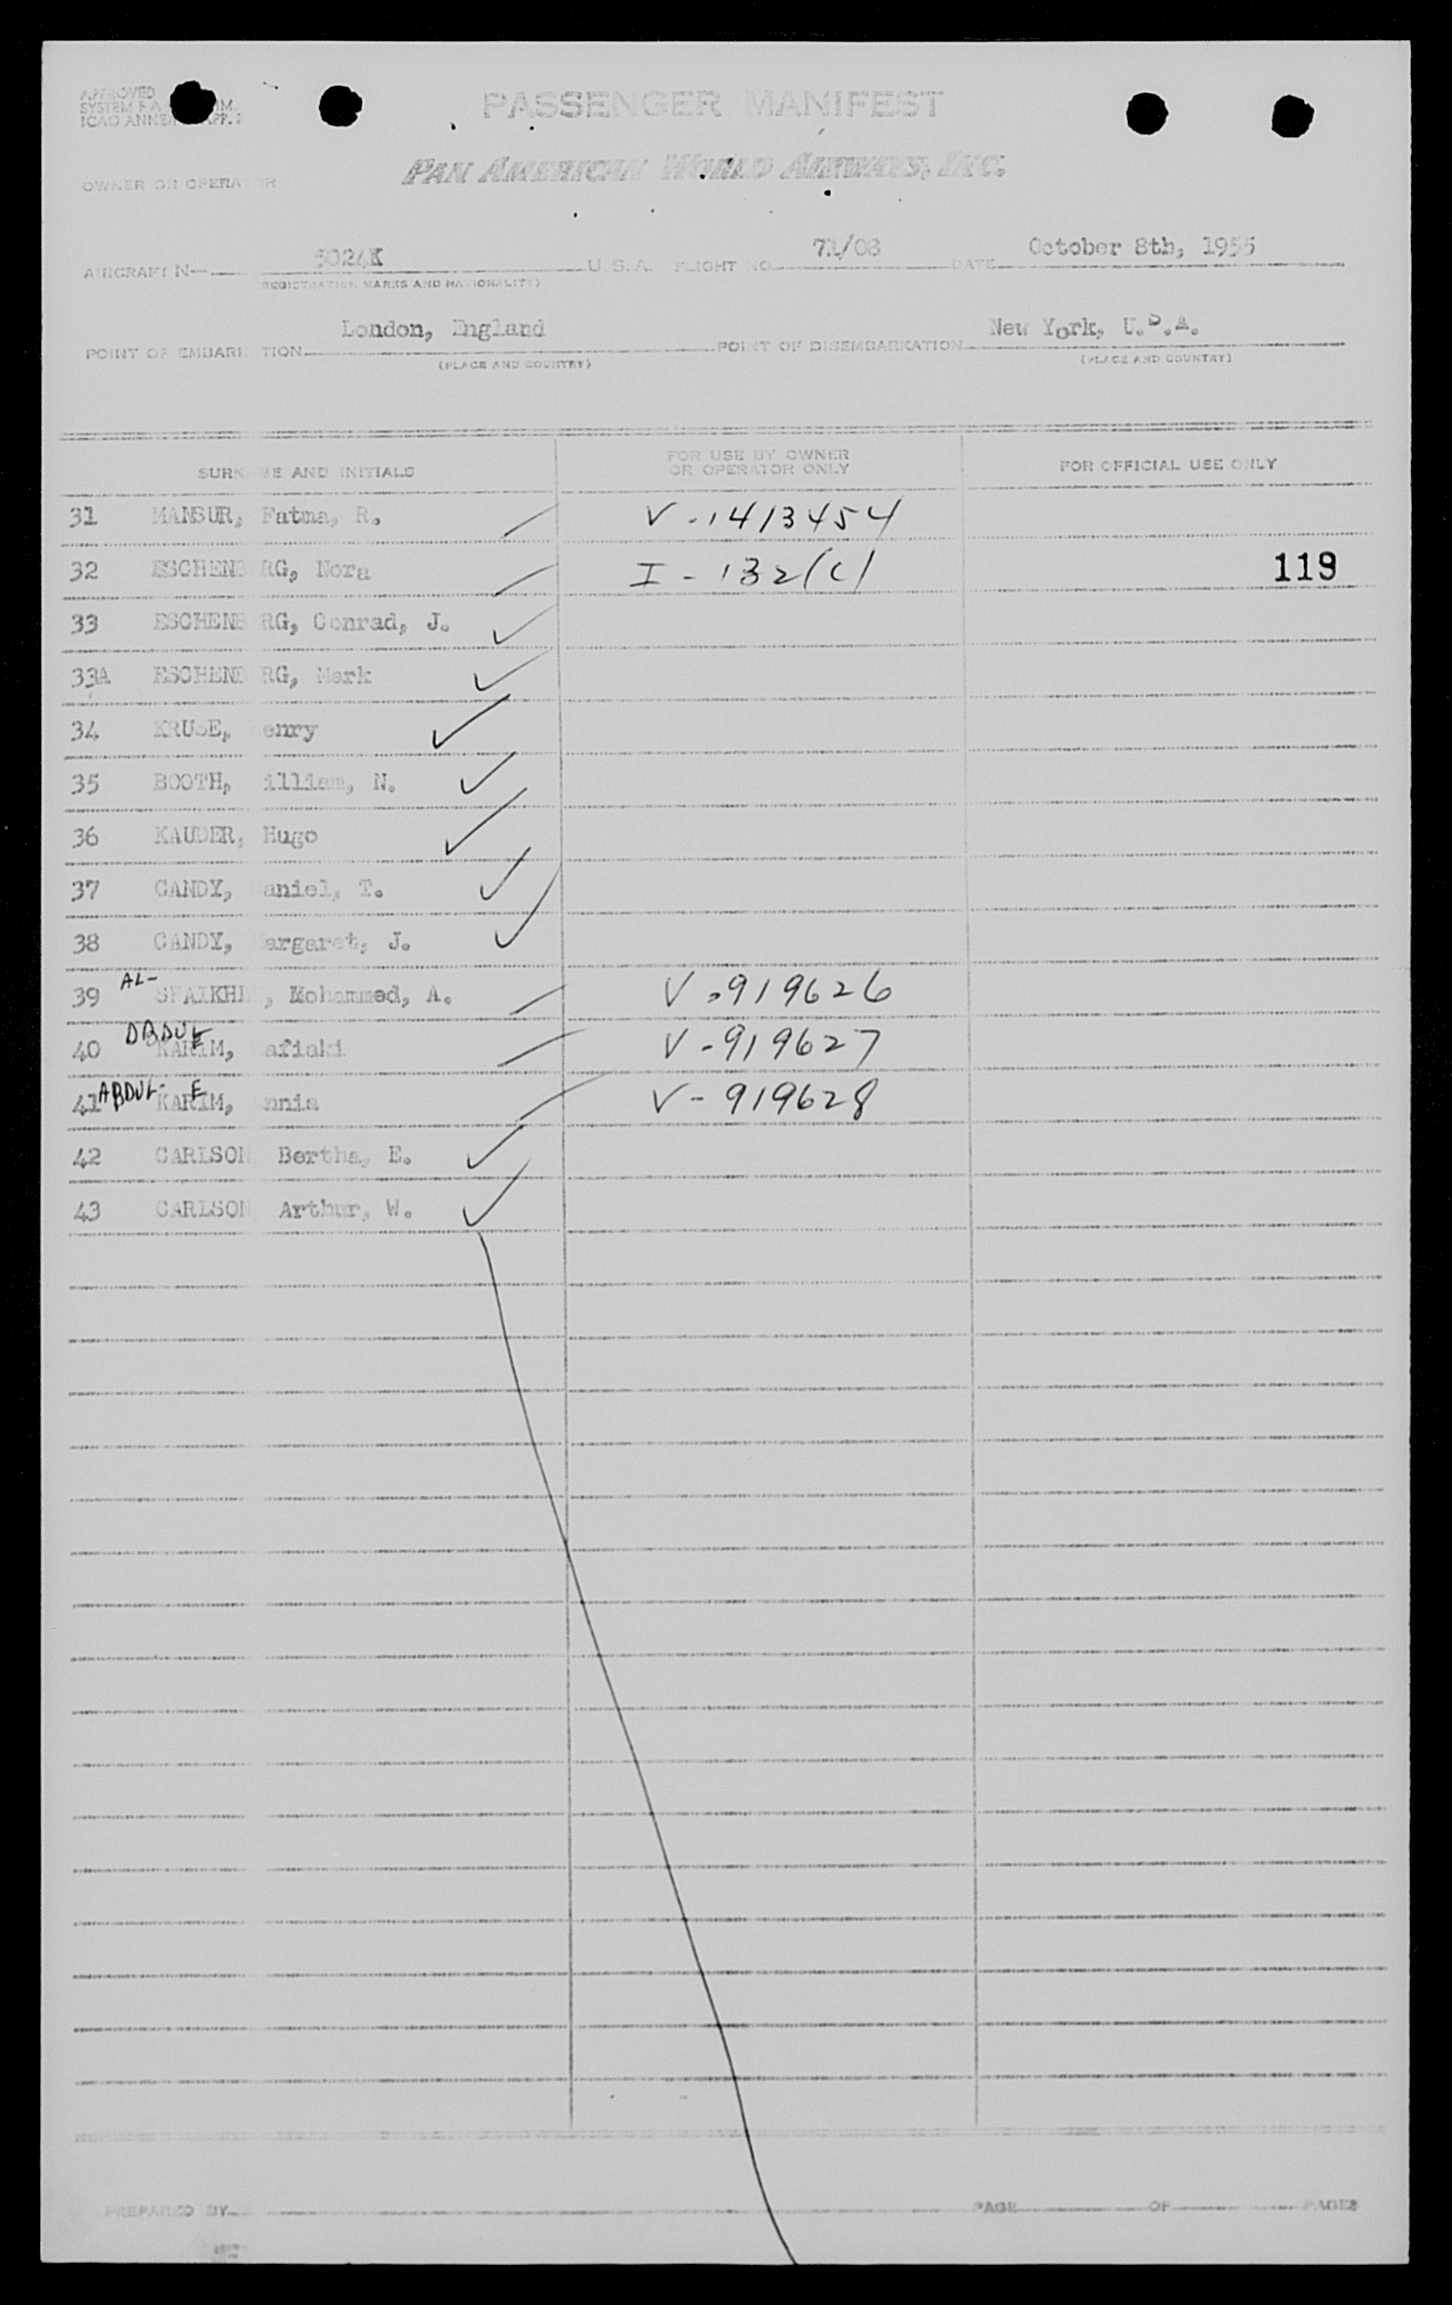 APPROVED
SYSTEM F.A IM.
ICAO ANNE APP. 2
PASSENGER MANIFEST
PAN AMERICAN WORLD AIRWAYS, INC.
OWNER OR OPERATOR
AIRCRAFT N— 5024K U.S.A. FLIGHT NO. 71/08 DATE October 8th, 1955
(REGISTRATION MARKS AND NATIONALITY)
POINT OF EMBARK TION London, England POINT OF DISEMBARKATION New York, U.S.A.
(PLACE AND COUNTRY) (PLACE AND COUNTRY)
SURN ME AND INITIALS FOR USE BY OWNER OR OPERATOR ONLY FOR OFFICIAL USE ONLY
31 MANSUR, Fatma, R. V-1413454
32 ESCHENB RG, Nora I-132(c) 119
33 ESCHENB RG, Conrad, J.
33A ESCHENB RG, Mark
34 KRUSE, enry
35 BOOTH, illiam, N.
36 KAUDER, Hugo
37 CANDY, aniel, T.
38 CANDY, argaret, J.
AL-
39 SHAIKHL , Mohammed, A. V-919626
40 KARIM, afiaki V-919627
ABDUL- E
41 KARIM, nnia V-919628
42 CARLSON Bertha, E.
43 CARLSON Arthur, W.
PREPARED BY PAGE OF PAGES